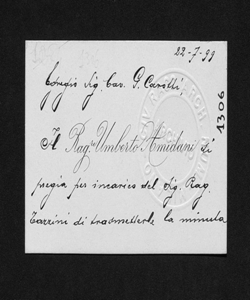 22-7-99
Egregio Sig. Cav. G. Carotti,
Il Rag. Umberto Amidani si
pregia per incarico del Sig. Rag.
Tarrini di trasmetterle la minuta
1306